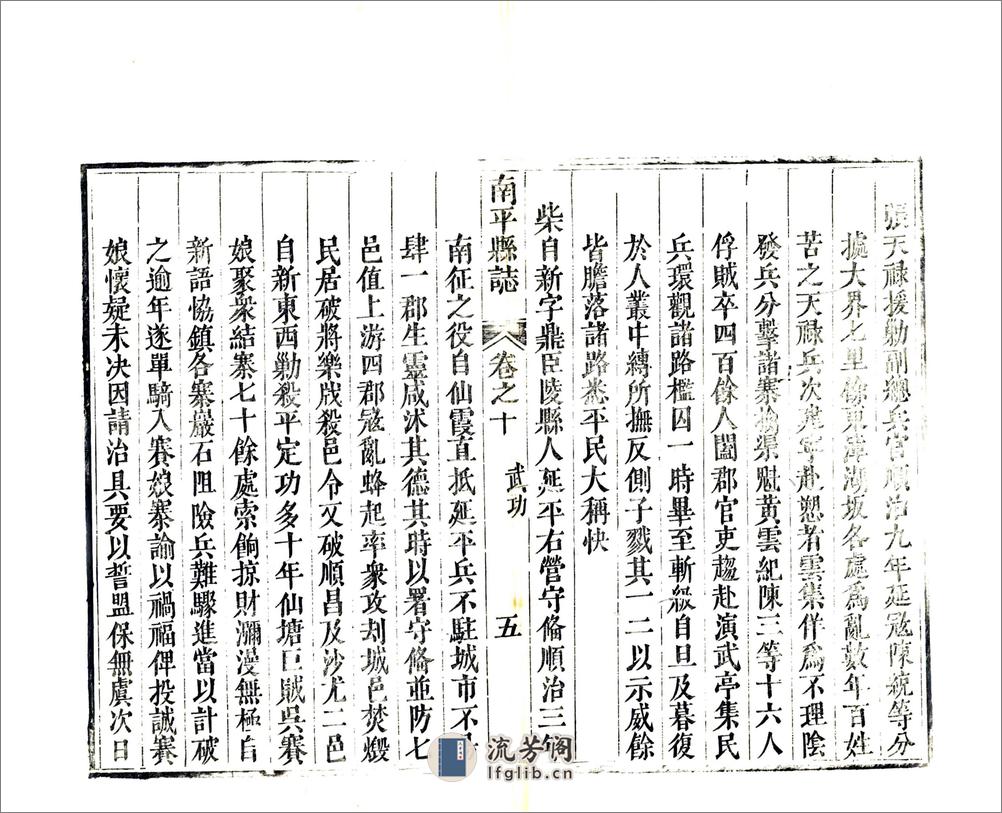 張天祿援勦副總兵官順治九年延寇陳統等分
據大界七里餘東漳湖坂各處為亂數年百姓
苦之天祿兵次建寧赴愬者雲集佯為不理陰
發兵分擊諸寨擒渠魁黃雲紀陳三等十六人
俘賊卒四百餘人闔郡官吏趨赴演武亭集民
兵環觀諸路檻囚一時畢至斬級自旦及暮復
於人叢中縛所撫反側子戮其一二以示威餘
皆膽落諸路悉平民大稱快
柴自新字鼎臣陵縣人延平右營守俻順治三年
南平縣誌
卷之十
武功
五
南征之役自仙霞直抵延平兵不駐城市不
肆一郡生靈咸沐其德其時以署守俻並防七
邑值上游四郡寇亂蜂起率衆攻刦城邑焚燬
民居破將樂戕殺邑令又破順昌及沙尤二邑
自新東西勦殺平定功多十年仙塘巨賊吳賽
娘聚衆結寨七十餘處索餉掠財瀰漫無極自
新語協鎮各寨巖石阻險兵難驟進當以計破
之逾年遂單騎入賽娘寨諭以禍福俾投誠賽
娘懷疑未決因請治具要以誓盟保無虞次日
流芳阁
lfglib.cn